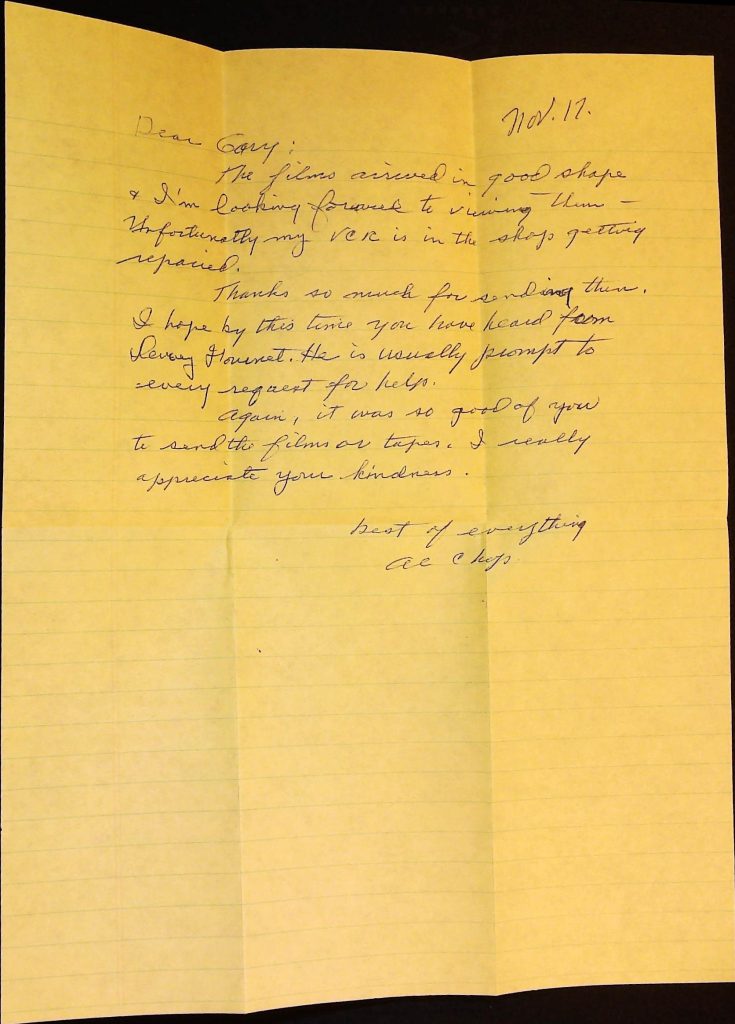 Nov. 17.
Dear Gary:
The films arrived in good shape
& I'm looking forward to viewing them -
Unfortunatly my VCR is in the shop getting
repaired.
Thanks so much for sending them.
I hope by this time you have heard from
He is usually prompt to
every request for help.
Again, it was so good of you
to send the films or tapes. I really
appreciate your kindness.
best of everything
Al Chop